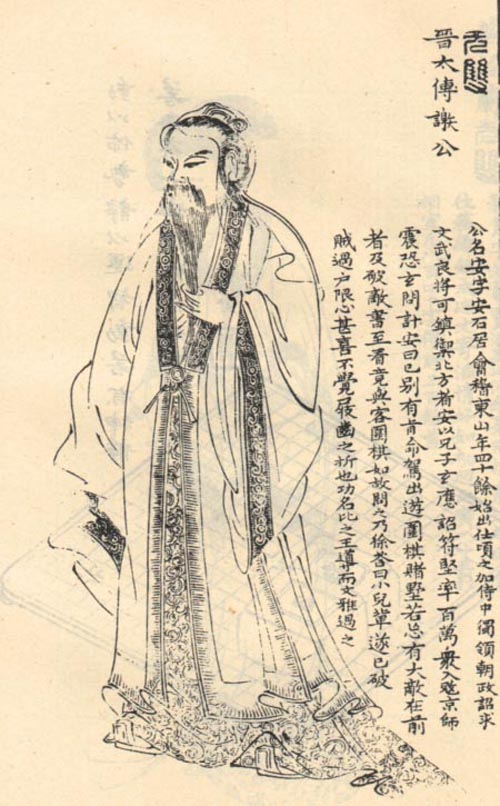 无雙
晉太傅謝公
公名安字安石居會稽東山年四十餘始出仕頃之加侍中獨領朝政詔求
文武良將可鎮御北方者安以兄子玄應詔符堅率百萬衆入寇京師
震恐玄問計安曰已別有旨命駕出遊圍棋賭墅若忘有大敵在前
者及破敵書至看竟與客圍棋如故問之乃徐答曰小兒輩遂已破
賊過户限心甚喜不覺屐齒之折也功名比之王導而文雅過之